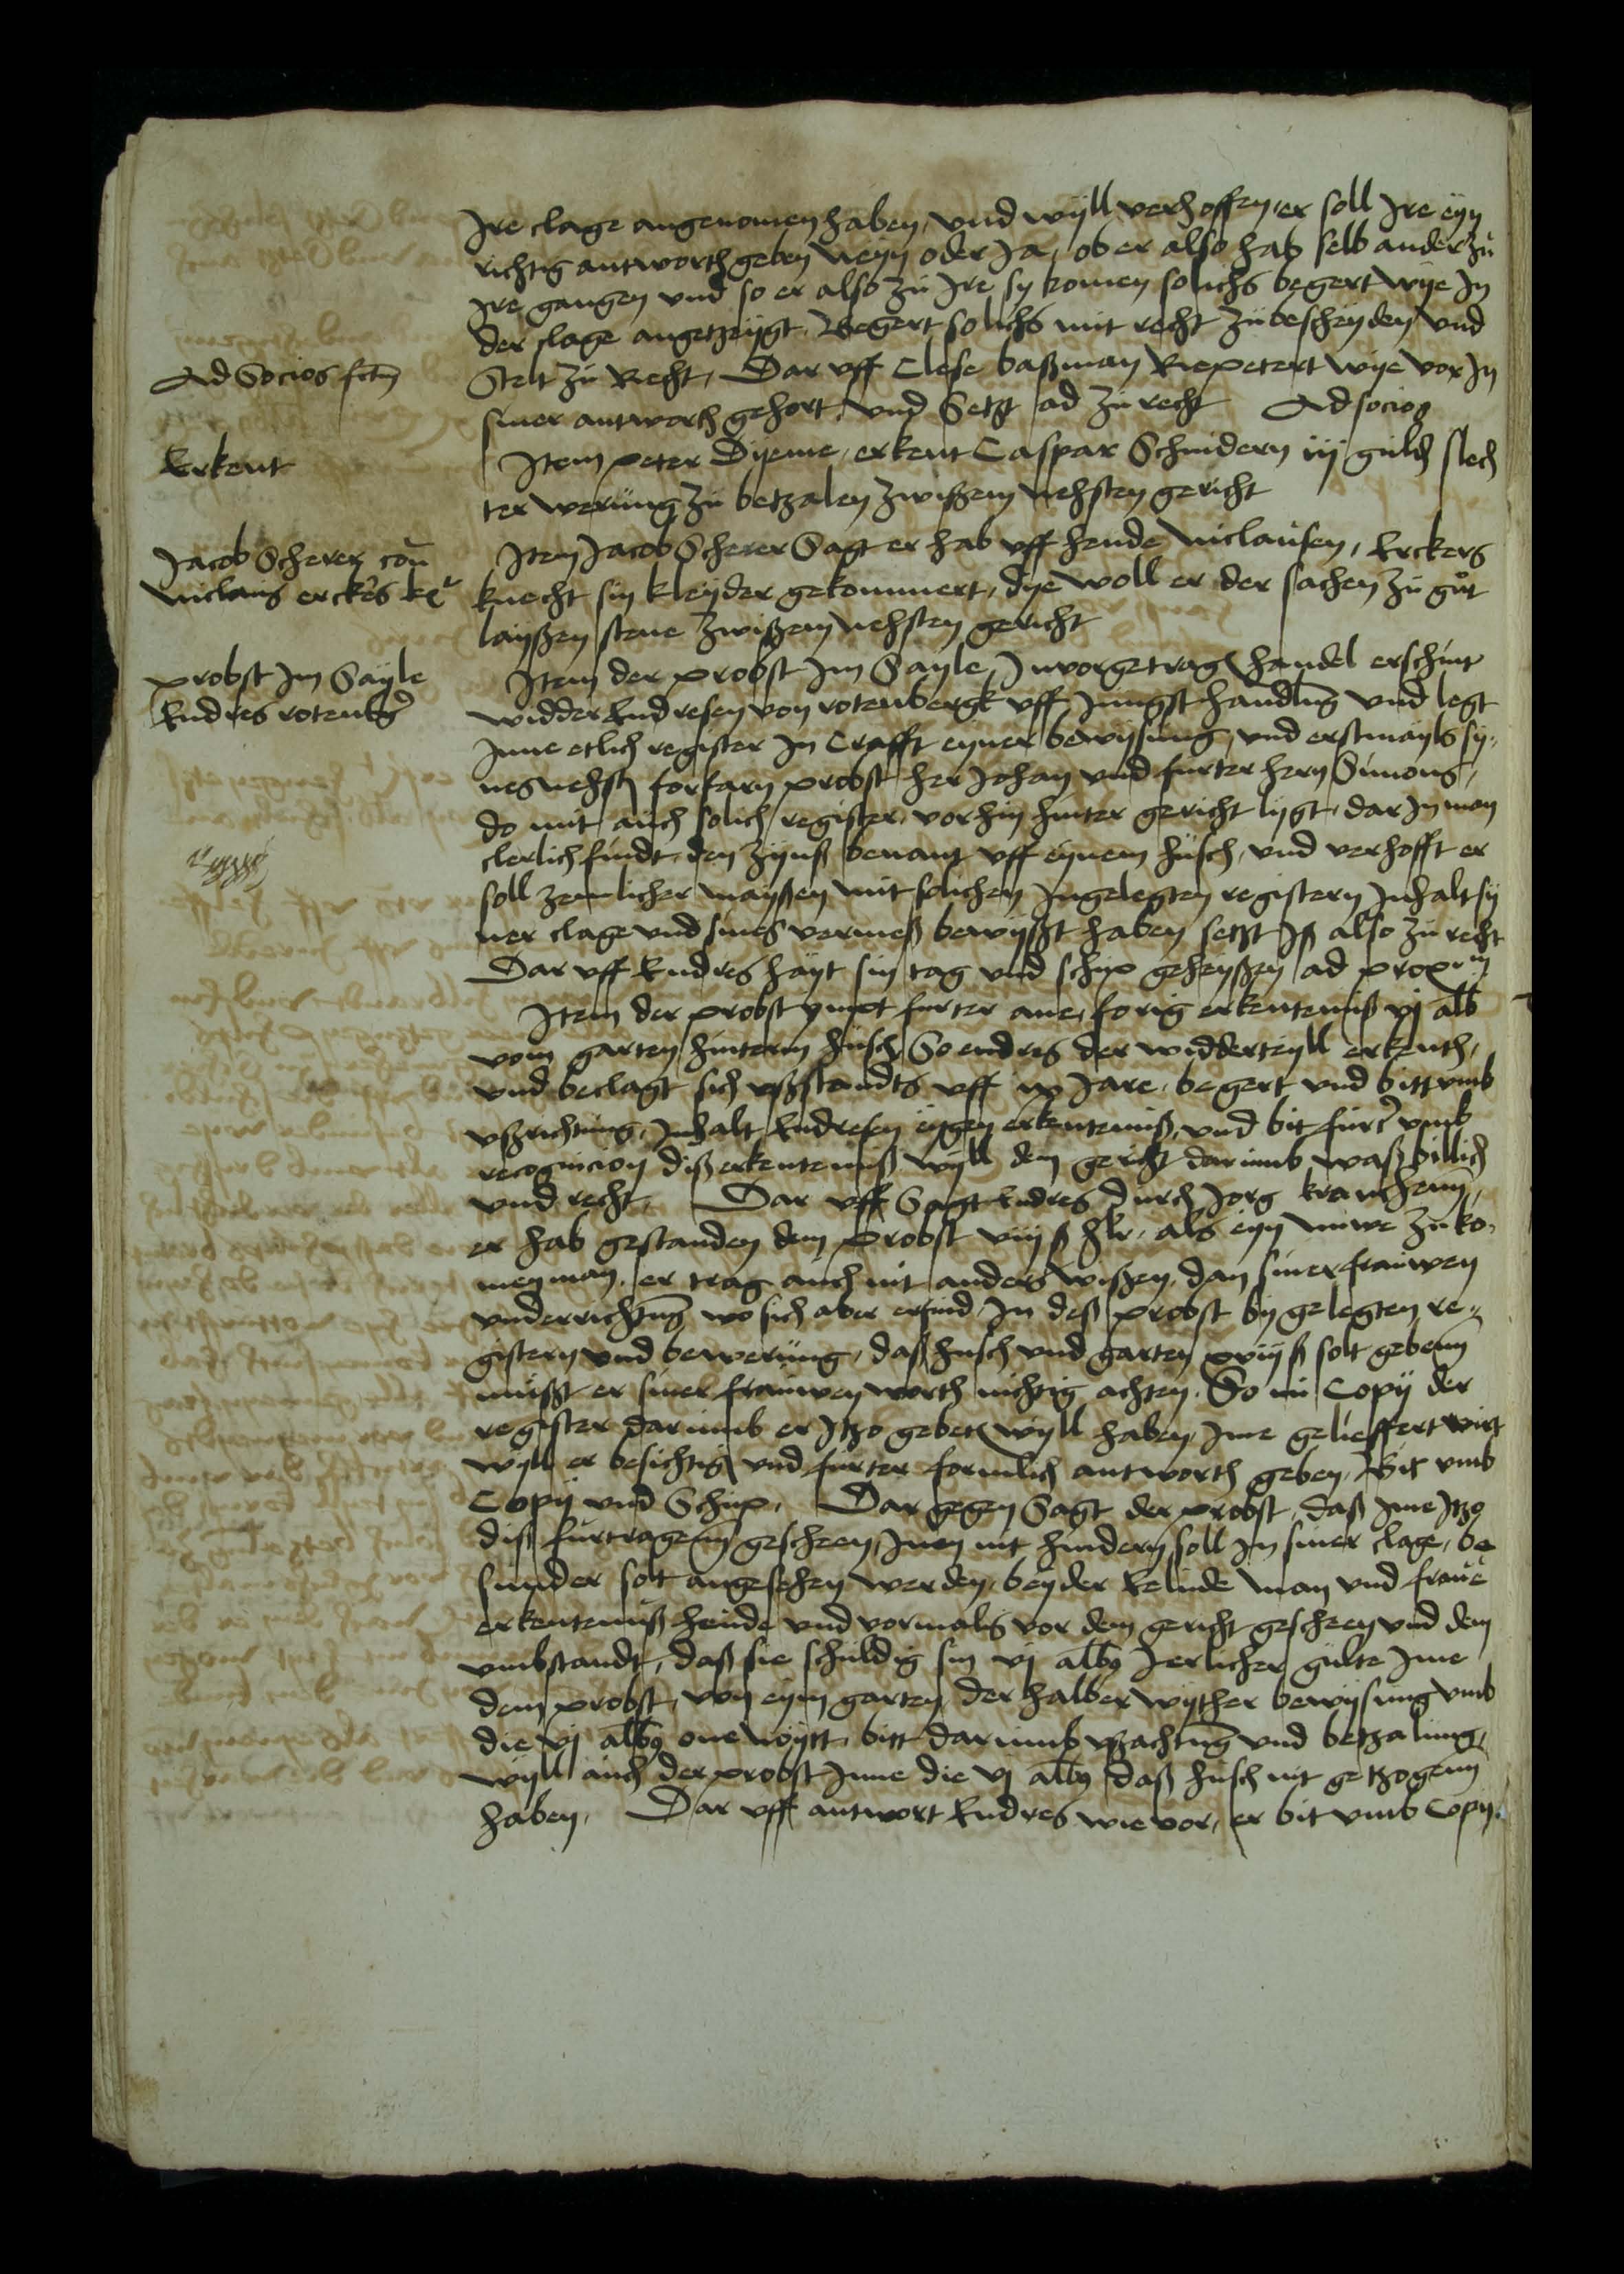 Ire clage angenomen haben, und wyll verhoffen, er soll Ire eyn
richtig antworth geben neyn oder Ja, ob er also hab selb ander zu
Ire gangen und so er also zu Ire sy komen solichs begert wye In
der clage angetzeygt. Begert solichs mit recht zu bescheyden und
Ad Socios fctm
Stelt zu Recht, Dar uff Clese baßman Repetert wye vor In
siner antworth gehort, und Setzt ad zu recht Ad socios
Erkent
Item peter Dyeme, erkent Caspar Schnidern iij guld slech
ter werung zu betzalen zwißem nehsten gericht
Jacob Scherer con
niclaus erckers
Item Jacob Scherer Sagt er hab uff heude niclausen, Erckers
knecht sin kleyder gekommert, dye woll er der sachen zu gut
layßen stene zwißem nehsten gericht
probst Im Sayle
Endres rotenbg
Item der probst Im Sayle, Invorgetrag handel erschint
widder Endresen von rotenbergk uff Jungst handlung und legt
Inne etlich register In Crafft eyner bewysung, und erstmayls sy,
nes nehst forfarn probst her Johan und furter hern Simons,
do mit auch solich register, vorhin hinter gericht lygt, dar In man
clerlich findt, den zynß benant uff eynem husch, und verhofft er
soll zemlicher mayßen mit solichen Ingelegten registern Inhalt sy
ner clage und sines vermeß bewyßt haben setzt Iß also zu recht
Dar uff Endres hayt sin tag und schip geheyßen ad proxm
Item der probst ympt furter ane, forig erkentenuß vj alb
vom garten hinterm husch So endres der widderteyll erkenth,
und beclagt sich ußstandts uff ix Jare, begert und bitt umb
ußrichtung, Inhalt Endresen eygen erkentenuß, und bit furt umb
recognicion diß erkentenuß wyll dem gericht darumb waß billich
und recht, Dar uff Sagt Endres durch Jorg kranchenn,
er hab gestanden dem probst viij ß hlr, als eyn nuwe zu ko,
men man, er trag auch nit anders wißen, dan siner frauwen
underrichtung wo sich aber erfind, In deß probst by gelegten re,,
gistern und bewerung, daß husch und garten xviij ß solt gebenn
mußt er siner frauwen worth nichtig achten. So im Copij der
register darumb er Itzo gebet wyll haben, Ime gelieffert wirt
wyll er besichtig und furter formlich antworth geben, Bit umb
Copij und Schip. Dar gegen Sagt der probst, daß Ime Itzo
diß furtragenn gescheen, Inen nit hindern soll In siner clage, be
sunder solt angesehen werden, beyder Eelude man und frauwe
erkentenuß heude und vormals vor dem gericht gescheen und dem
umbstandt, daß sie schuldig sin vj albg Jerlicher gulte Ime
dem probst, von eym garten der halber wyther bewysung umb
die vj albg one noytt, bitt darumb ußrachtung und betzalung,
wyll auch der probst Inne die vj albg daß husch nit getzogenn
haben, Dar uff antwort Endres wie vor, er bit umb Copij.